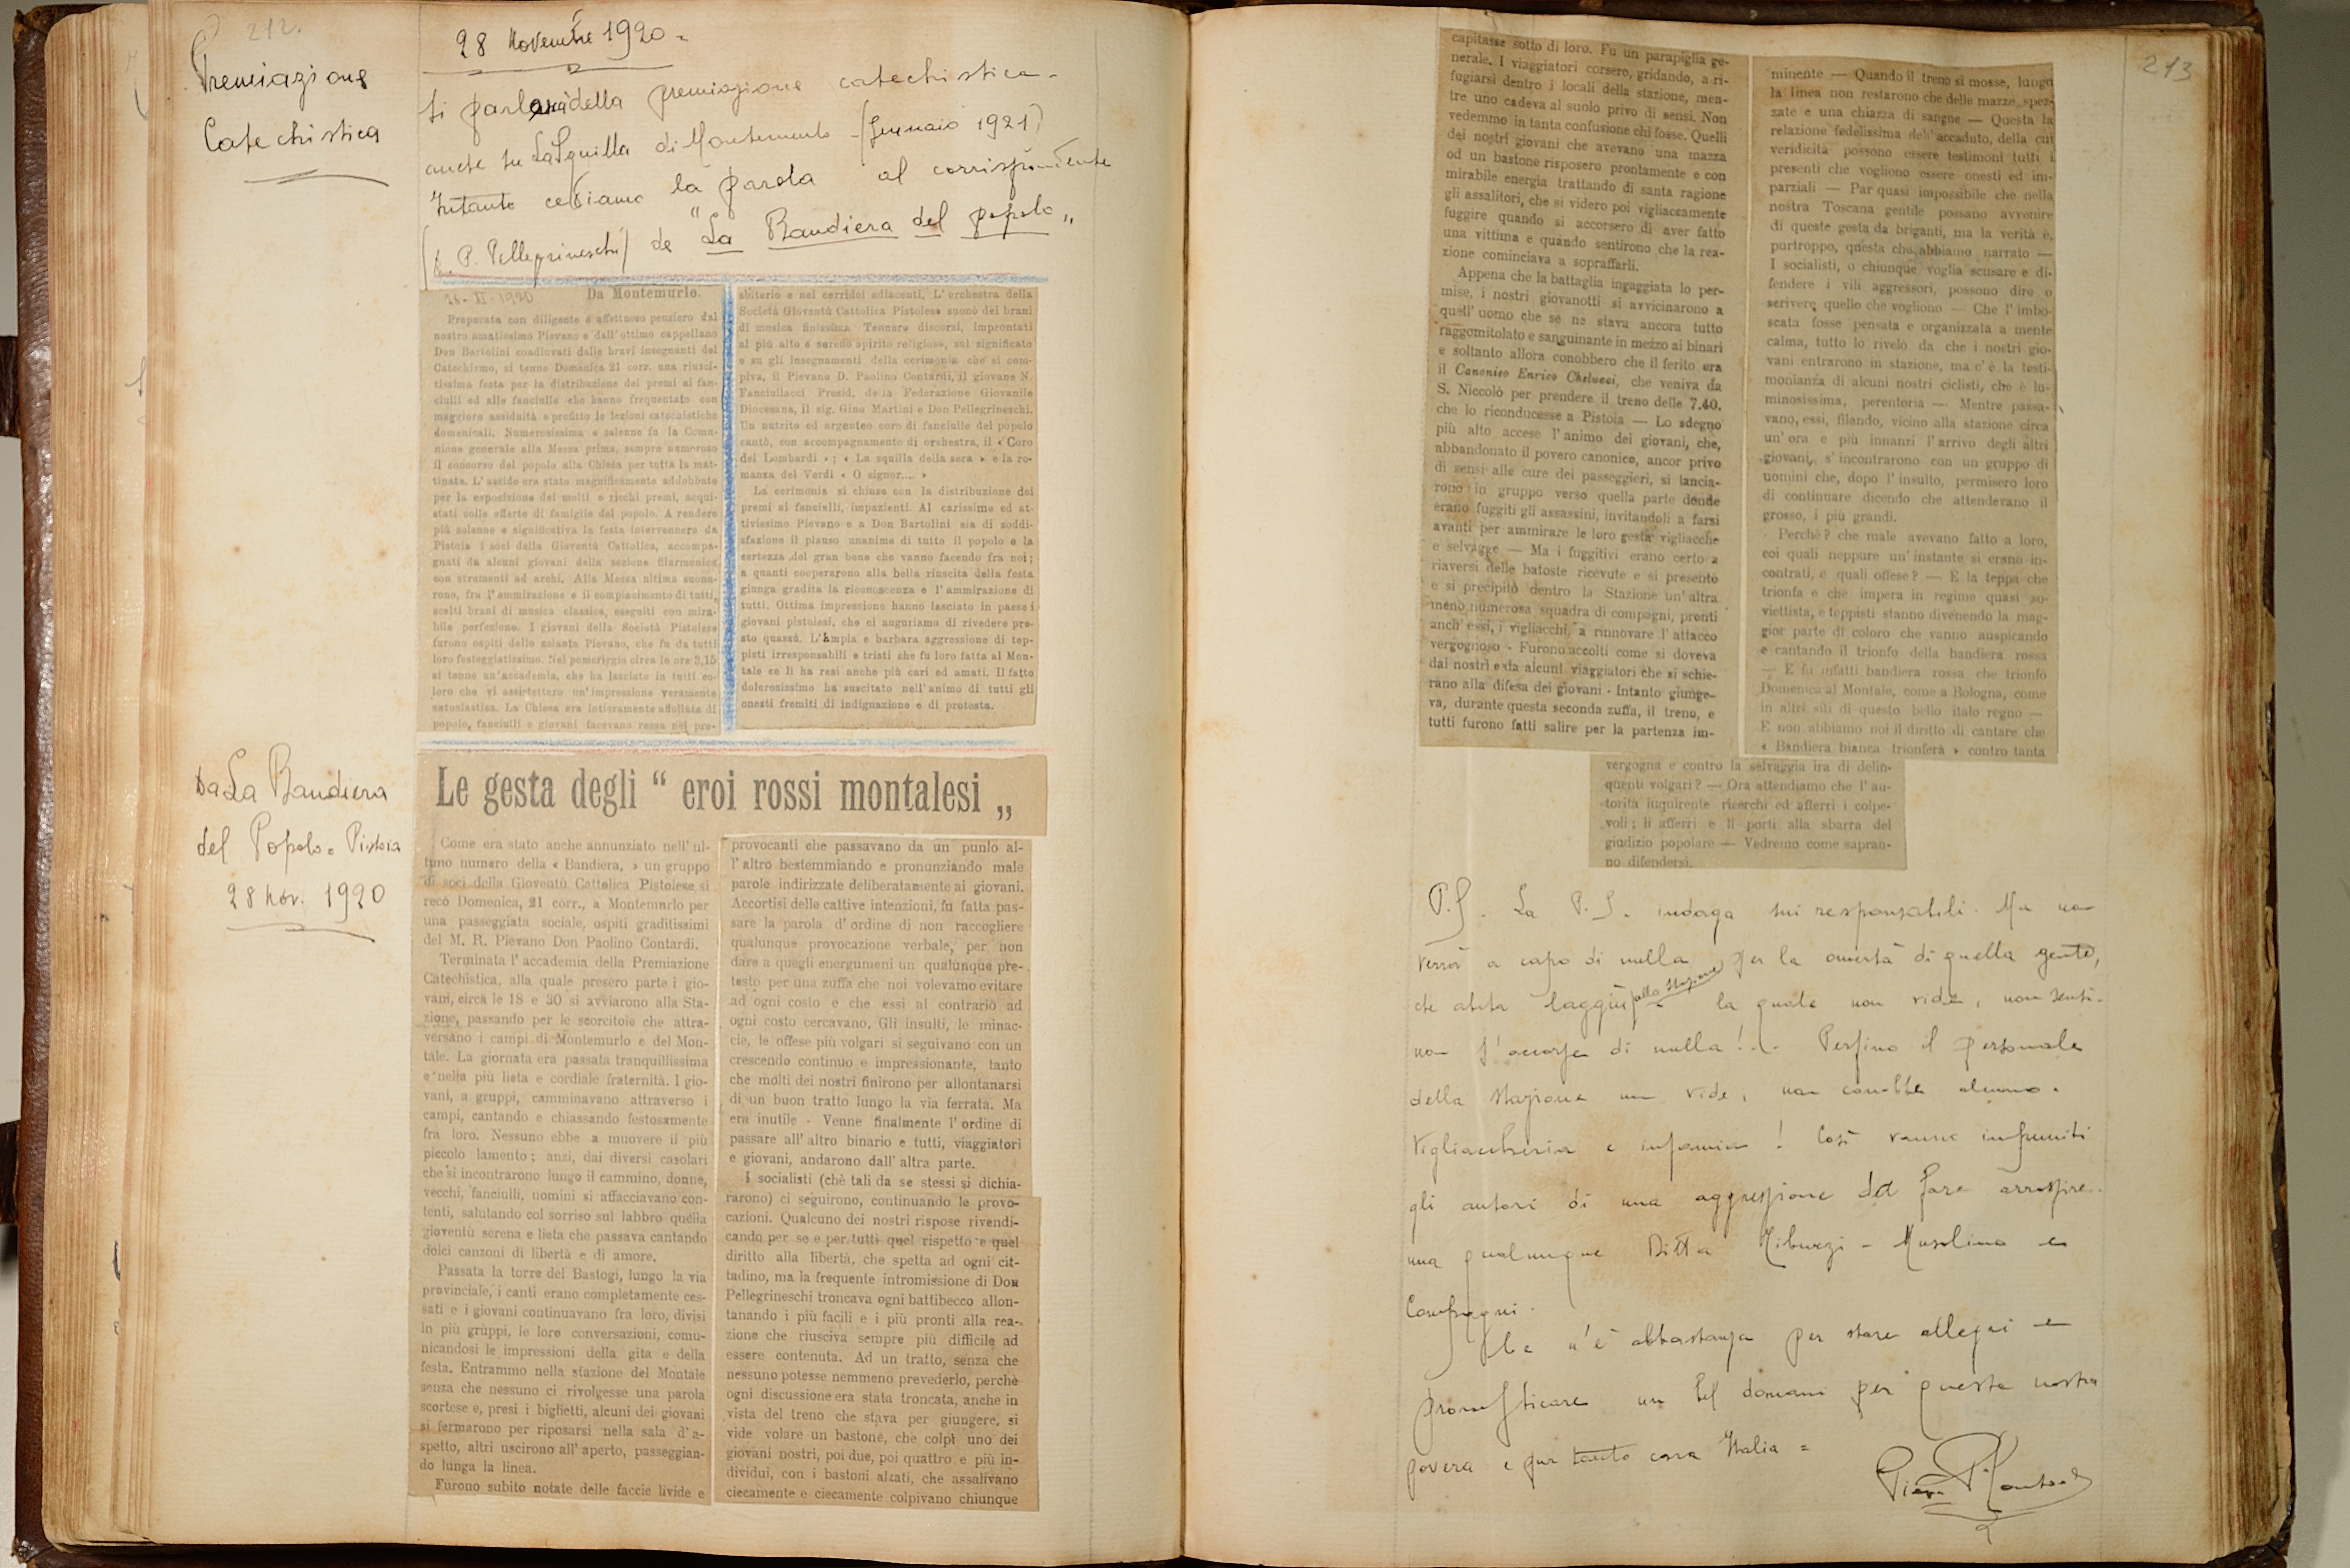 212.
Premiazione
Catechistica
28 Novembre 1920 =
Si parlerà della premiazione catechistica -
anche su La Squilla di Montemurlo - (Gennaio 1921)
Intanto cediamo la parola al corrispondente
P. Pellegrineschi) de "La Bandiera del popolo„
28 - XI - 1920
Da Montemurlo.
Preparata con diligente e affettuoso pensiero dal
nostro amatissimo Pievano e dall'ottimo cappellano
Don Bartolini coadiuvati dalle bravi insegnanti del
Catechismo, si tenne Domenica 21 corr. una riusci-
tissima festa per la distribuzione dei premi ai fan-
ciulli ed alle fanciulle che hanno frequentato con
maggiore assiduità e profitto le lezioni catechistiche
domenicali. Numerosissima e solenne fu la Comu-
nione generale alla Messa prima, sempre numeroso
il concorso del popolo alla Chiesa per tutta la mat-
tinata. L'asside era stato magnificamente addobbato
per la esposizione dei molti e ricchi premi, acqui-
stati colle offerte di famiglie del popolo. A rendere
più solenne e significativa la festa intervennero da
Pistoia i soci della Gioventù Cattolica, accompa-
gnati da alcuni giovani della sezione filarmonica
con strumenti ad archi. Alla Messa ultima suona-
rono, fra l'ammirazione e il compiacimento di tutti,
scelti brani di musica classica, eseguiti con mira-
bile perfezione. I giovani della Società Pistoiese
furono ospiti dello zelante Pievano, che fu da tutti
loro festeggiatissimo. Nel pomeriggio circa le ore 3,15
si tenne un'accademia, che ha lasciato in tutti co-
loro che vi assistettero un'impressione veramente
entusiastica. La Chiesa era interamente affollata di
popolo, fanciulli e giovani facevano ressa nel pre-
sbiterio e nei corridoi adiacenti. L'orchestra della
Società Gioventù Cattolica Pistoiese suonò dei brani
di musica finissima. Tennero discorsi, improntati
al più alto e sereno spirito religioso, sul significato
e su gli insegnamenti della cerimonia che si com-
piva, il Pievano D. Paolino Contardi, il giovane N.
Fanciullacci Presid. della Federazione Giovanile
Diocesana, il sig. Gino Martini e Don Pellegrineschi.
Un nutrito ed argenteo coro di fanciulle del popolo
cantò, con accompagnamento di orchestra, il « Coro
dei Lombardi » ; « La squilla della sera » e la ro-
manza del Verdi « O signor.... »
La cerimonia si chiuse con la distribuzione dei
premi ai fanciulli, impazienti. Al carissimo ed at-
tivissimo Pievano e a Don Bartolini sia di soddi-
sfazione il plauso unanime di tutto il popolo e la
certezza del gran bene che vanno facendo fra noi ;
a quanti cooperarono alla bella riuscita della festa
giunga gradita la riconoscenza e l'ammirazione di
tutti. Ottima impressione hanno lasciato in paese i
giovani pistoiesi, che ci auguriamo di rivedere pre-
sto quassù. L'ampia e barbara aggressione di tep-
pisti irresponsabili e tristi che fu loro fatta al Mon-
tale ce li ha resi anche più cari ed amati. Il fatto
dolorosissimo ha suscitato nell'animo di tutti gli
onesti fremiti di indignazione e di protesta.
Da La Bandiera
del Popolo = Pistoia
28 Nov. 1920
Le gesta degli “ eroi rossi montalesi „
Come era stato anche annunziato nell'ul-
timo numero della « Bandiera, » un gruppo
di soci della Gioventù Cattolica Pistoiese si
recò Domenica, 21 corr., a Montemurlo per
una passeggiata sociale, ospiti graditissimi
del M. R. Pievano Don Paolino Contardi.
Terminata l'accademia della Premiazione
Catechistica, alla quale presero parte i gio-
vani, circa le 18 e 30 si avviarono alla Sta-
zione, passando per le scorcitoie che attra-
versano i campi di Montemurlo e del Mon-
tale. La giornata era passata tranquillissima
e nella più lieta e cordiale fraternità. I gio-
vani, a gruppi, camminavano attraverso i
campi, cantando e chiassando festosamente
fra loro. Nessuno ebbe a muovere il più
piccolo lamento ; anzi, dai diversi casolari
che si incontrarono lungo il cammino, donne,
vecchi, fanciulli, uomini si affacciavano con-
tenti, salutando col sorriso sul labbro quella
gioventù serena e lieta che passava cantando
dolci canzoni di libertà e di amore.
Passata la torre del Bastogi, lungo la via
provinciale, i canti erano completamente ces-
sati e i giovani continuavano fra loro, divisi
in più gruppi, le loro conversazioni, comu-
nicandosi le impressioni della gita e della
festa. Entrammo nella stazione del Montale
senza che nessuno ci rivolgesse una parola
scortese e, presi i biglietti, alcuni dei giovani
si fermarono per riposarsi nella sala d'a-
spetto, altri uscirono all'aperto, passeggian-
do lunga la linea.
Furono subito notate delle faccie livide e
provocanti che passavano da un punto al-
l'altro bestemmiando e pronunziando male
parole indirizzate deliberatamente ai giovani.
Accortisi delle cattive intenzioni, fu fatta pas-
sare la parola d'ordine di non raccogliere
qualunque provocazione verbale, per non
dare a quegli energumeni un qualunque pre-
testo per una zuffa che noi volevamo evitare
ad ogni costo e che essi al contrario ad
ogni costo cercavano. Gli insulti, le minac-
cie, le offese più volgari si seguivano con un
crescendo continuo e impressionante, tanto
che molti dei nostri finirono per allontanarsi
di un buon tratto lungo la via ferrata. Ma
era inutile - Venne finalmente l'ordine di
passare all'altro binario e tutti, viaggiatori
e giovani, andarono dall'altra parte.
I socialisti (chè tali da se stessi si dichia-
rarono) ci seguirono, continuando le provo-
cazioni. Qualcuno dei nostri rispose rivendi-
cando per se e per tutti quel rispetto e quel
diritto alla libertà, che spetta ad ogni cit-
tadino, ma la frequente intromissione di Don
Pellegrineschi troncava ogni battibecco allon-
tanando i più facili e i più pronti alla rea-
zione che riusciva sempre più difficile ad
essere contenuta. Ad un tratto, senza che
nessuno potesse nemmeno prevederlo, perchè
ogni discussione era stata troncata, anche in
vista del treno che stava per giungere, si
vide volare un bastone, che colpì uno dei
giovani nostri, poi due, poi quattro e più in-
dividui, con i bastoni alzati, che assalivano
ciecamente e ciecamente colpivano chiunque
213
capitasse sotto di loro. Fu un parapiglia ge-
nerale. I viaggiatori corsero, gridando, a ri-
fugiarsi dentro i locali della stazione, men-
tre uno cadeva al suolo privo di sensi. Non
vedemmo in tanta confusione chi fosse. Quelli
dei nostri giovani che avevano una mazza
od un bastone risposero prontamente e con
mirabile energia trattando di santa ragione
gli assalitori, che si videro poi vigliaccamente
fuggire quando si accorsero di aver fatto
una vittima e quando sentirono che la rea-
zione cominciava a sopraffarli.
Appena che la battaglia ingaggiata lo per-
mise, i nostri giovanotti si avvicinarono a
quell'uomo che se ne stava ancora tutto
raggomitolato e sanguinante in mezzo ai binari
e soltanto allora conobbero che il ferito era
il Canonico Enrico Chelucci, che veniva da
S. Niccolò per prendere il treno delle 7.40.
che lo riconducesse a Pistoia — Lo sdegno
più alto accese l'animo dei giovani, che,
abbandonato il povero canonico, ancor privo
di sensi alle cure dei passeggieri, si lancia-
rono in gruppo verso quella parte donde
erano fuggiti gli assassini, invitandoli a farsi
avanti per ammirare le loro gesta vigliacche
e selvagge — Ma i fuggitivi erano certo a
riaversi delle batoste ricevute e si presentò
e si precipitò dentro la Stazione un'altra
meno numerosa squadra di compagni, pronti
anch'essi, i vigliacchi, a rinnovare l'attacco
vergognoso - Furono accolti come si doveva
dai nostri e da alcuni viaggiatori che si schie-
rano alla difesa dei giovani - Intanto giunge-
va, durante questa seconda zuffa, il treno, e
tutti furono fatti salire per la partenza im-
minente — Quando il treno si mosse, lungo
la linea non restarono che delle mazze spez-
zate e una chiazza di sangue — Questa la
relazione fedelissima dell'accaduto, della cui
veridicità possono essere testimoni tutti i
presenti che vogliono essere onesti ed im-
parziali — Par quasi impossibile che nella
nostra Toscana gentile possano avvenire
di queste gesta da briganti, ma la verità è,
purtroppo, questa che abbiamo narrato —
I socialisti, o chiunque voglia scusare e di-
fendere i vili aggressori, possono dire o
scrivere quello che vogliono — Che l'imbo-
scata fosse pensata e organizzata a mente
calma, tutto lo rivelò da che i nostri gio-
vani entrarono in stazione, ma c'è la testi-
monianza di alcuni nostri ciclisti, che è lu-
minosissima, perentoria — Mentre passa-
vano, essi, filando, vicino alla stazione circa
un'ora e più innanzi l'arrivo degli altri
giovani, s'incontrarono con un gruppo di
uomini che, dopo l'insulto, permisero loro
di continuare dicendo che attendevano il
grosso, i più grandi.
Perchè? che male avevano fatto a loro,
coi quali neppure un'instante si erano in-
contrati, e quali offese? — È la teppa che
trionfa e che impera in regime quasi so-
viettista, e teppisti stanno divenendo la mag-
gior parte di coloro che vanno auspicando
e cantando il trionfo della bandiera rossa
— E fu infatti bandiera rossa che trionfò
Domenica al Montale, come a Bologna, come
in altri siti di questo bello italo regno —
E non abbiamo noi il diritto di cantare che
« Bandiera bianca trionferà » contro tanta
vergogna e contro la selvaggia ira di delin-
quenti volgari? — Ora attendiamo che l'au-
torità inquirente ricerchi ed afferri i colpe-
voli ; li afferri e li porti alla sbarra del
giudizio popolare — Vedremo come sapran-
no difendersi.
P.S. La P.S. indaga sui responsabili. Ma non
verrà a capo di nulla per la omertà di quella gente,
che abita laggiù alla stazione la quale non vide, non sentì
non s'accorse di nulla!... Perfino il personale
della stazione non vide, non conobbe alcuno.
Vigliaccheria e infamia! Così vanno impuniti
gli autori di una aggressione da fare arrossire
una qualunque Ditta Tiburzi - Musolino e
Compagni.
Ce n'è abbastanza per stare allegri e
pronosticare un bel domani per questa nostra
povera e pur tanto cara Italia =